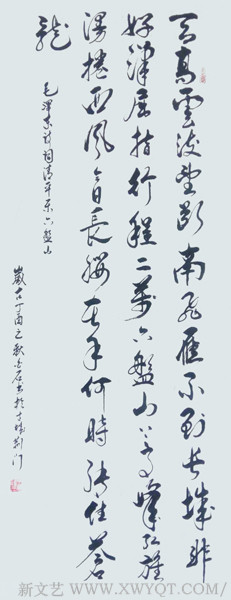 天高雲淡望斷南飛雁不到長城非
好漢屈指行程二萬六盤山上高峰紅旗
漫捲西風今日長纓在手何時縛住蒼
龍
毛澤東詩詞清平樂六盤山
歲在丁酉之秋石書於荊门
新文艺 WWW.XWYQT.COM